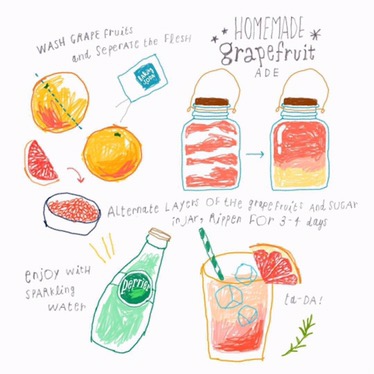 HOMEMADE
grapefruit
ADE
WASH GRAPEfruits
and SEPERATE the FLESH
baking
soda
Alternate LAYERS OF the grapefruits and SUGAR
in jar, Rippen FOR 3-4 days
enjoy with
SPARKling
WATER
perrier
ta-DA!